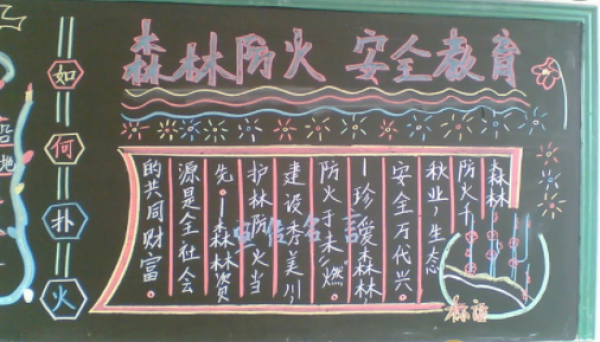 森林防火 安全教育
如
何
扑
火
森林
防火千
秋业，生态
安全万代兴
—珍爱森林
防火于未“燃。
建设秀美川，
护林防火当
先。—森林资
源是全社会
的共同财富。
宣传名言
标语